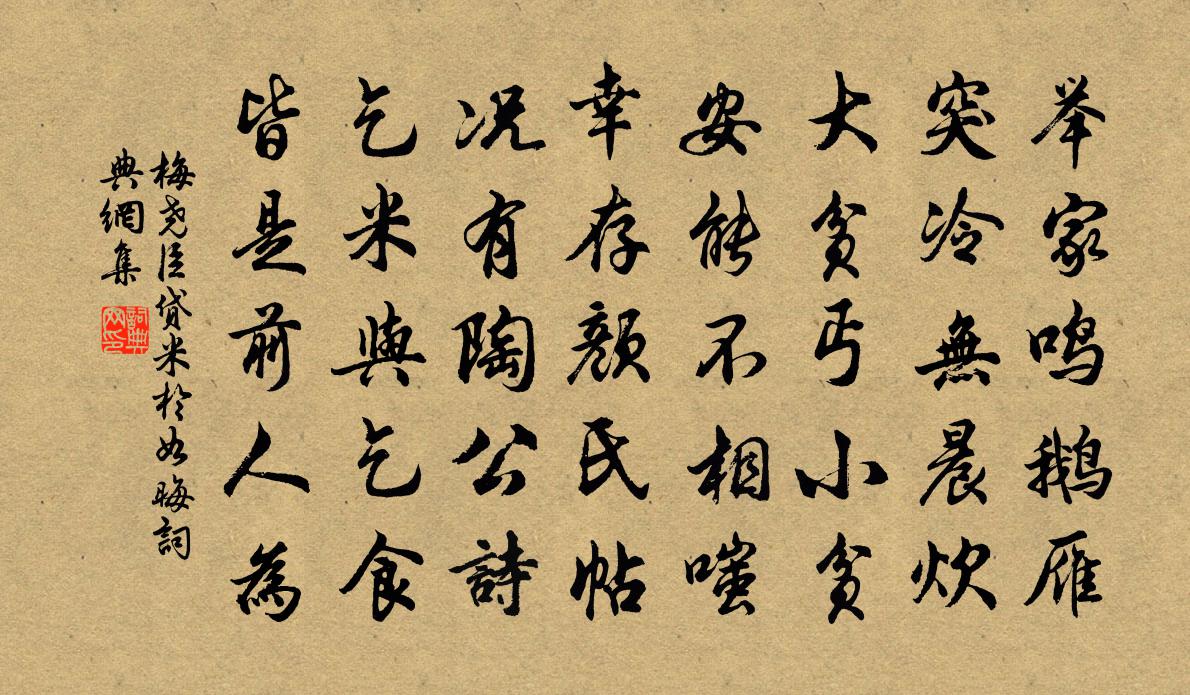 举家鸣鹅雁
突冷無晨炊
大贫丐小贫
安能不相嗤
幸存颜氏帖
况有陶公詩
乞米與乞食
皆是前人為
梅尧臣贷米於如晦詞
典網集
詞典网印